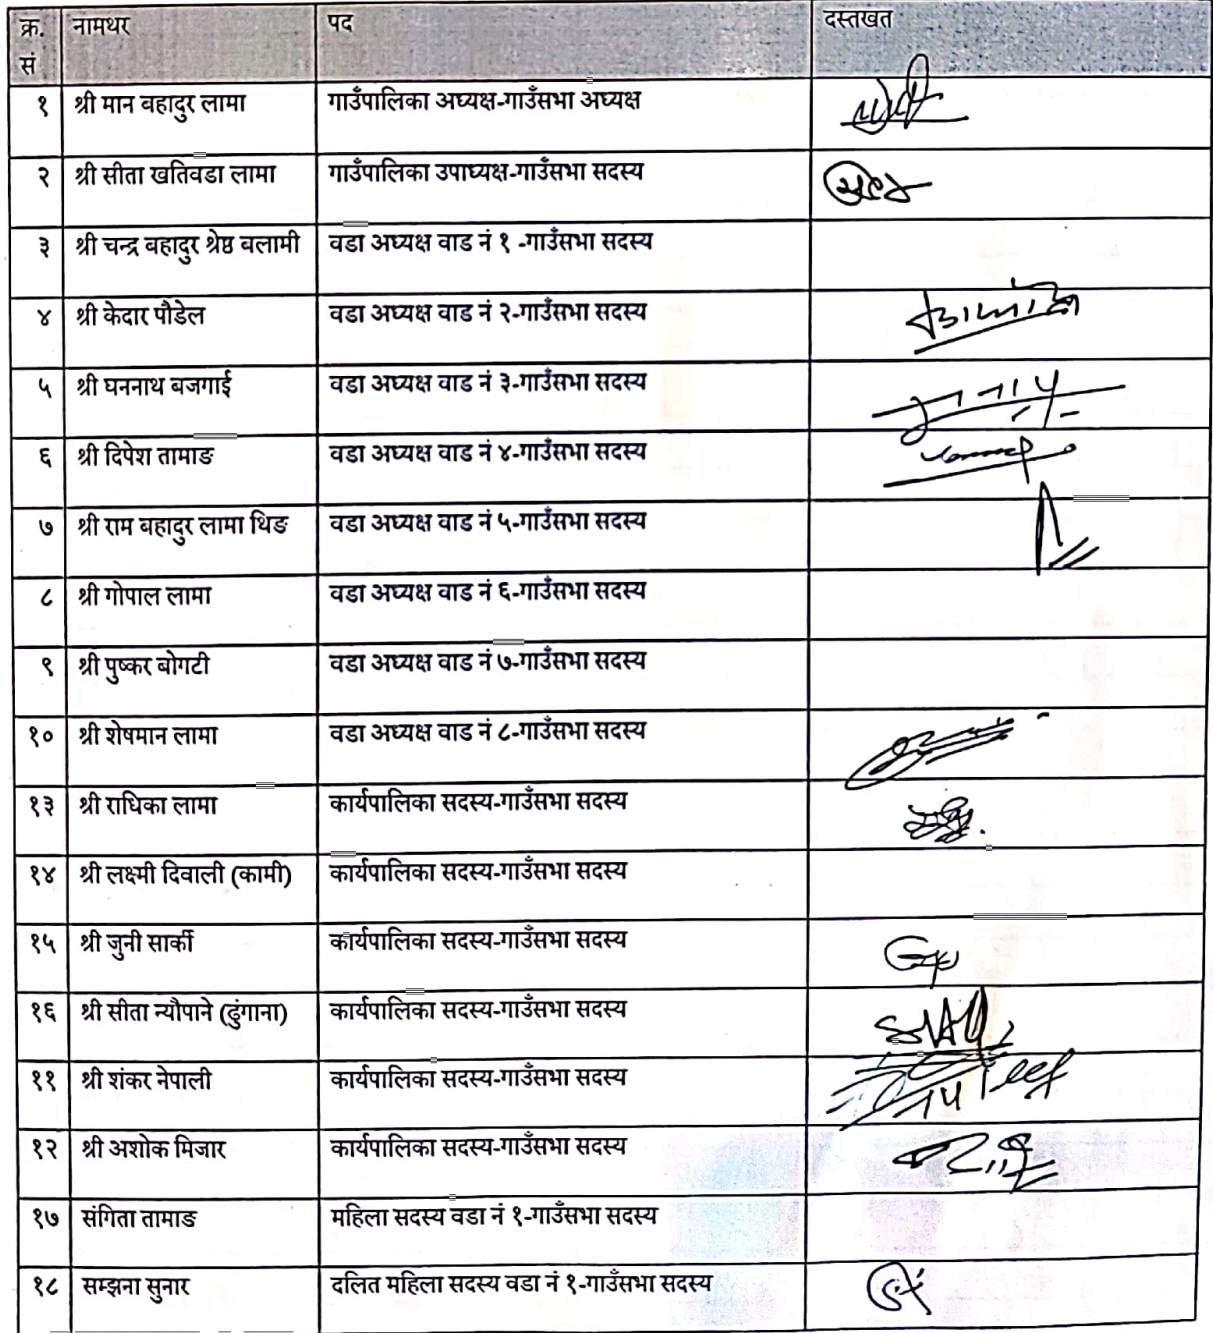 क्र. नामथर पद दस्तखत
सं
१ श्री मान बहादुर लामा गाउँपालिका अध्यक्ष-गाउँसभा अध्यक्ष
२ श्री सीता खतिवडा लामा गाउँपालिका उपाध्यक्ष-गाउँसभा सदस्य
३ श्री चन्द्र बहादुर श्रेष्ठ बलामी वडा अध्यक्ष वाड नं १ -गाउँसभा सदस्य
४ श्री केदार पौडेल वडा अध्यक्ष वाड नं २-गाउँसभा सदस्य
५ श्री घननाथ बजगाई वडा अध्यक्ष वाड नं ३-गाउँसभा सदस्य
६ श्री दिपेश तामाङ वडा अध्यक्ष वाड नं ४-गाउँसभा सदस्य
७ श्री राम बहादुर लामा थिङ वडा अध्यक्ष वाड नं ५-गाउँसभा सदस्य
८ श्री गोपाल लामा वडा अध्यक्ष वाड नं ६-गाउँसभा सदस्य
९ श्री पुष्कर बोगटी वडा अध्यक्ष वाड नं ७-गाउँसभा सदस्य
१० श्री शेषमान लामा वडा अध्यक्ष वाड नं ८-गाउँसभा सदस्य
१३ श्री राधिका लामा कार्यपालिका सदस्य-गाउँसभा सदस्य
१४ श्री लक्ष्मी दिवाली (कामी) कार्यपालिका सदस्य-गाउँसभा सदस्य
१५ श्री जुनी सार्की कार्यपालिका सदस्य-गाउँसभा सदस्य
१६ श्री सीता न्यौपाने (ढुंगाना) कार्यपालिका सदस्य-गाउँसभा सदस्य
११ श्री शंकर नेपाली कार्यपालिका सदस्य-गाउँसभा सदस्य
१२ श्री अशोक मिजार कार्यपालिका सदस्य-गाउँसभा सदस्य
१७ संगिता तामाङ महिला सदस्य वडा नं १-गाउँसभा सदस्य
१८ सम्झना सुनार दलित महिला सदस्य वडा नं १-गाउँसभा सदस्य